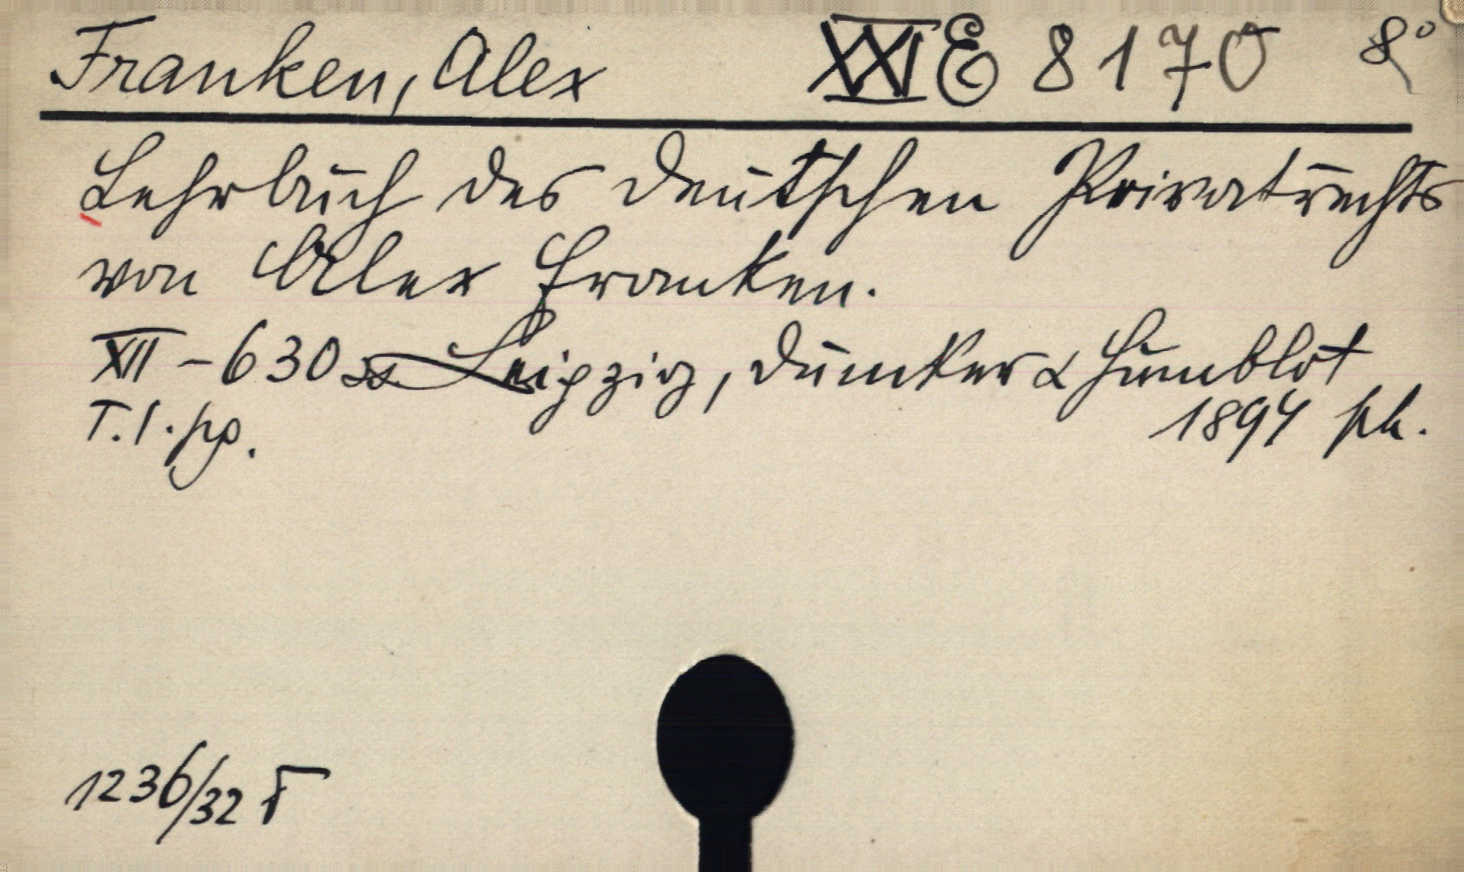 Franken, Alex XXI E 8170 8°
Lehrbuch des deutschen Privatrechts
von Alex Franken.
XII-630 ss. Leipzig, Duncker & Humblot
T.I. pp. 1894
1236/32